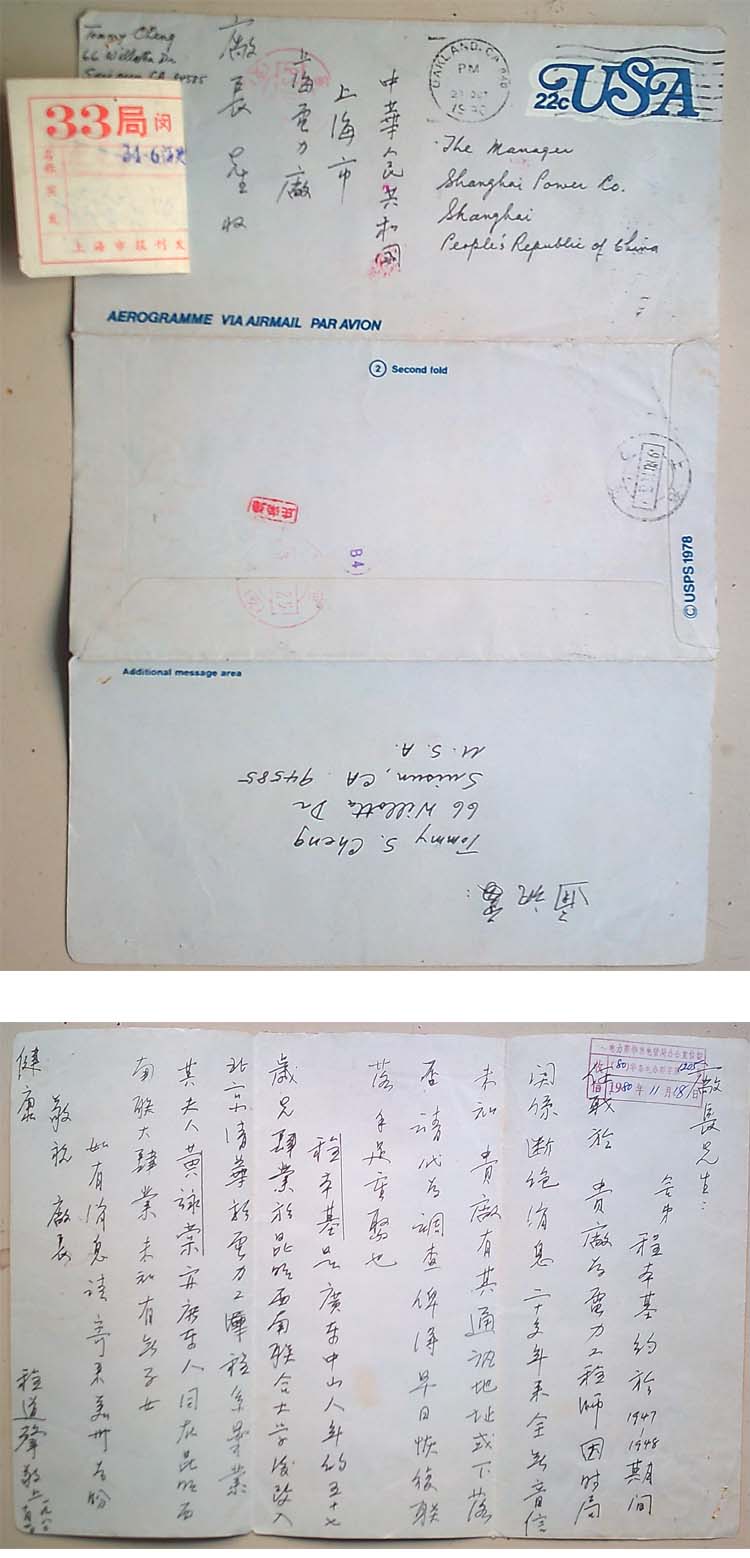 Tommy Cheng
66 Willotta Dr
Suisun CA 94585
33局 闵
上海市报刊发
OAKLAND, CA
PM
USA
22c
The Manager
Shanghai Power Co.
Shanghai
People's Republic of China
中華人民共和國
上海市
上海電力廠
廠長先生收
AEROGRAMME VIA AIRMAIL PAR AVION
2 Second fold
B4
© USPS 1978
Additional message area
Tommy S. Cheng
66 Willotta Dr
Suisun, CA 94585
U.S.A.
1980年11月18日
廠長先生:
舍弟 程本基約於1947/1948期間
任職於 貴廠為電力工程師因時局
関係断絶消息 二十多年來全無音信
未知 貴廠有其通訊地址或下落
否 請代為調查俾得早日恢復聯
落手足重聚也
程本基是廣東中山人年約五十七
歲 肄業於昆明西南联合大学後改入
北京清華於電力工程系畢業
其夫人黃詠棠亦廣東人同在昆明西
南联大肄業未知有無子女
如有消息請寄來美州為盼
敬祝 廠長
健康
程道聲敬上